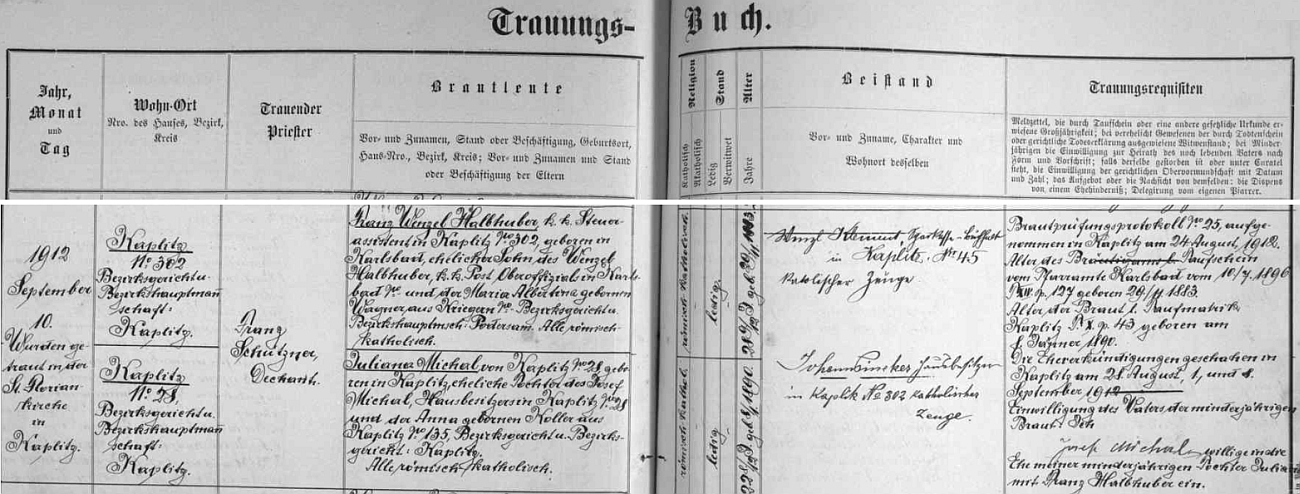 Trauungs-Buch.
Jahr,
Monat
und
Tag
Wohn-Ort
Nro. des Hauses, Bezirk,
Kreis
Trauender
Priester
Brautleute
Vor- und Zunamen, Stand oder Beschäftigung, Geburtsort,
Haus-Nro., Bezirk, Kreis; Vor- und Zunamen und Stand
oder Beschäftigung der Eltern
Religion
Katholisch
Akatholisch
Stand
Ledig
Verwitwet
Alter
Jahre
Beistand
Vor- und Zuname, Charakter und
Wohnort desselben
Trauungsrequisiten
Meldzettel, die durch Taufschein oder eine andere gesetzliche Urkunde er-
wiesene Großjährigkeit; bei verehelicht Gewesenen der durch Todtenschein
oder gerichtliche Todeserklärung ausgewiesene Witwenstand; bei Minder-
jährigen die Einwilligung zur Heirath des noch lebenden Vaters nach
Form und Vorschrift; falls derselbe gestorben ist oder unter Curatel
steht, die Einwilligung der gerichtlichen Obervormundschaft mit Datum
und Zahl; das Aufgebot oder die Nachsicht von demselben; die Dispens
von einem Ehehinderniß; Delegirung vom eigenen Pfarrer.
1912
September
10.
Wurden ge-
traut in der
St. Florian-
kirche
in
Kaplitz.
Kaplitz
No 302
Bezirksgericht u.
Bezirkshauptmann
schaft:
Kaplitz.
Kaplitz
No 28,
Bezirksgericht u.
Bezirkshauptmann
schaft:
Kaplitz.
Franz
Schützner,
Dechant.
Franz Wenzel Halbhuber, k. k. Steuer-
assistent in Kaplitz No 302, geboren in
Karlsbad, ehelicher Sohn des Wenzel
Halbhuber, k. k. Post Oberoffizial in Karls-
bad No - und der Maria Albertina gebornen
Wagner aus Kriegern No - Bezirksgericht u.
Bezirkshauptmsch. Podersam. Alle römisch-
katholisch.
Juliana Michal, von Kaplitz No 28, gebo-
ren in Kaplitz, eheliche Tochter des Josef
Michal, Hausbesitzers in Kaplitz No 28
und der Anna gebornen Koller aus
Kaplitz No 135, Bezirksgericht u. Bezirks-
gericht: Kaplitz.
Alle römisch katholisch.
römisch-katholisch.
ledig
römisch-kathol.
ledig
Sparkasse-
in Kaplitz, No 45
katolischer Zeuge.
Hausbesitzer
in Kaplitz No 302 katholischer
Zeuge.
Brautprüfungsprotokoll No 25, aufge-
nommen in Kaplitz am 24. August, 1912.
Alter des Bräutigams l. Taufschein
vom Pfarramte Karlsbad vom 10/7. 1896
p. 127 geboren 29/11 1883.
Alter der Braut l. Taufmatrik
Kaplitz p. 43 geboren am
Jänner 1890.
Die Eheverkündigungen geschahen in
Kaplitz am 28. August, 1, und 8.
September 1912
Einwilligung des Vaters der minderjährigen
Braut: Ich
Josef Michal willige in die
Ehe meiner minderjährigen Tochter Julia
mit Franz Halbhuber ein.